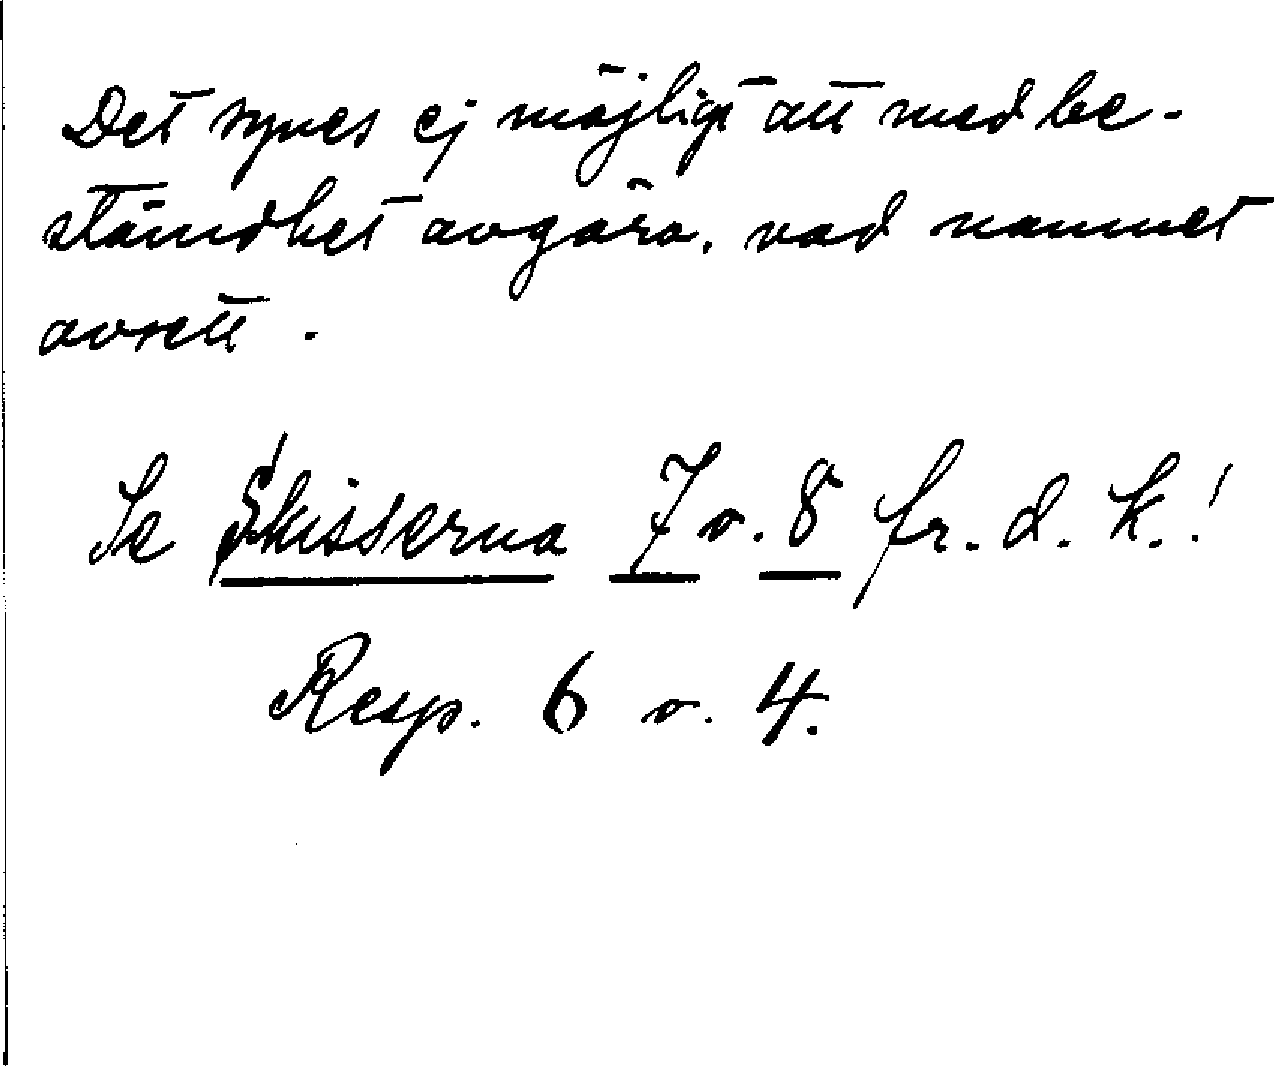 Det synes ej möjligt att med be-
ständhet avgöra, vad namnet
avsett.
Se Skisserna 7 o. 8 fr. d. k.!
Resp. 6 o. 4.